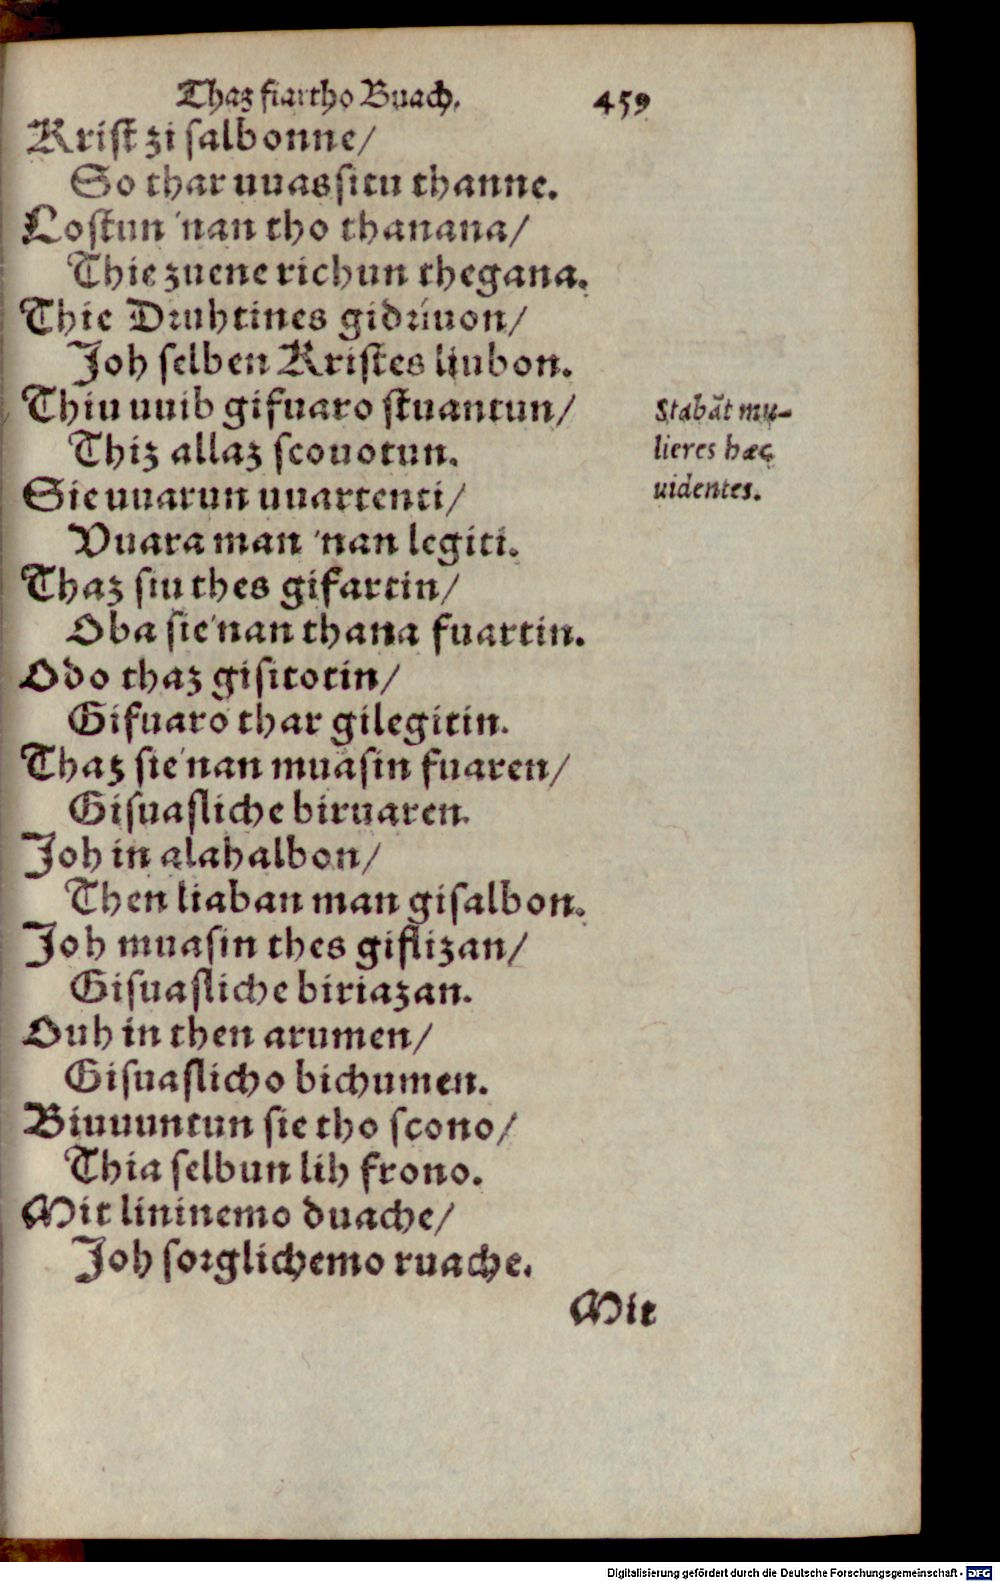 Thaz fiartho Buach. 459
Krist zi salbonne/
So thar uuas situ thanne.
Lostun 'nan tho thanana/
Thie zuene richun thegana.
Thie Druhtines gidríuon/
Joh selben Kristes liubon.
Thiu uuib gifuaro stuantun/
Thiz allaz scouotun.
Stabāt mu-
lieres hæc
uidentes.
Sie uuarun uuartenti/
Vuara man 'nan legiti.
Thaz siu thes gifartin/
Oba sie'nan thana fuartin.
Odo thaz gisitotin/
Gifuaro thar gilegitin.
Thaz sie'nan muasin fuaren/
Gisuasliche biruaren.
Joh in alahalbon/
Then liaban man gisalbon.
Joh muasin thes giflizan/
Gisuasliche biriazan.
Ouh in then arumen/
Gisuaslicho bichumen.
Biuuuntun sie tho scono/
Thia selbun lih frono.
Mit lininemo duache/
Joh sorglichemo ruache.
Mit
Digitalisierung gefördert durch die Deutsche Forschungsgemeinschaft - DFG